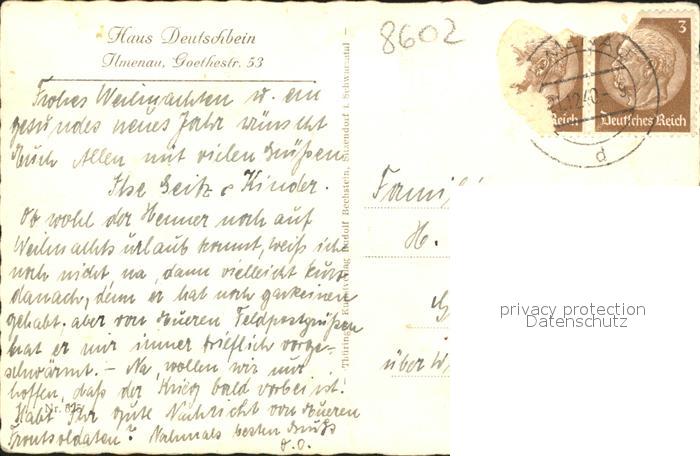 Haus Deutschbein
Ilmenau, Goethestr. 53
8602
3
21.12.40
Reich
Deutsches Reich
d
Frohes Weihnachten u. ein
gesundes neues Jahr wünscht
Euch Allen mit vielen Grüßen
Ilse Seitz & Kinder.
Ob wohl der Henner noch auf
Weihnachtsurlaub kommt, weiß ich
noch nicht, na, dann vielleicht kurz
danach, denn er hat noch garkeinen
gehabt. aber von Eueren Feldpostgrüßen
hat er mir immer brieflich vorge-
schwärmt. – Na, wollen wir nur
hoffen, daß der Krieg bald vorbei ist!
Habt Ihr gute Nachricht von Eueren
Frontsoldaten? Nochmals besten Gruß
D. O.
Nr. 615
Thüringer Kunstverlag Rudolf Bechstein, Sitzendorf i. Schwarzatal
Famil
H.
über W
privacy protection
Datenschutz